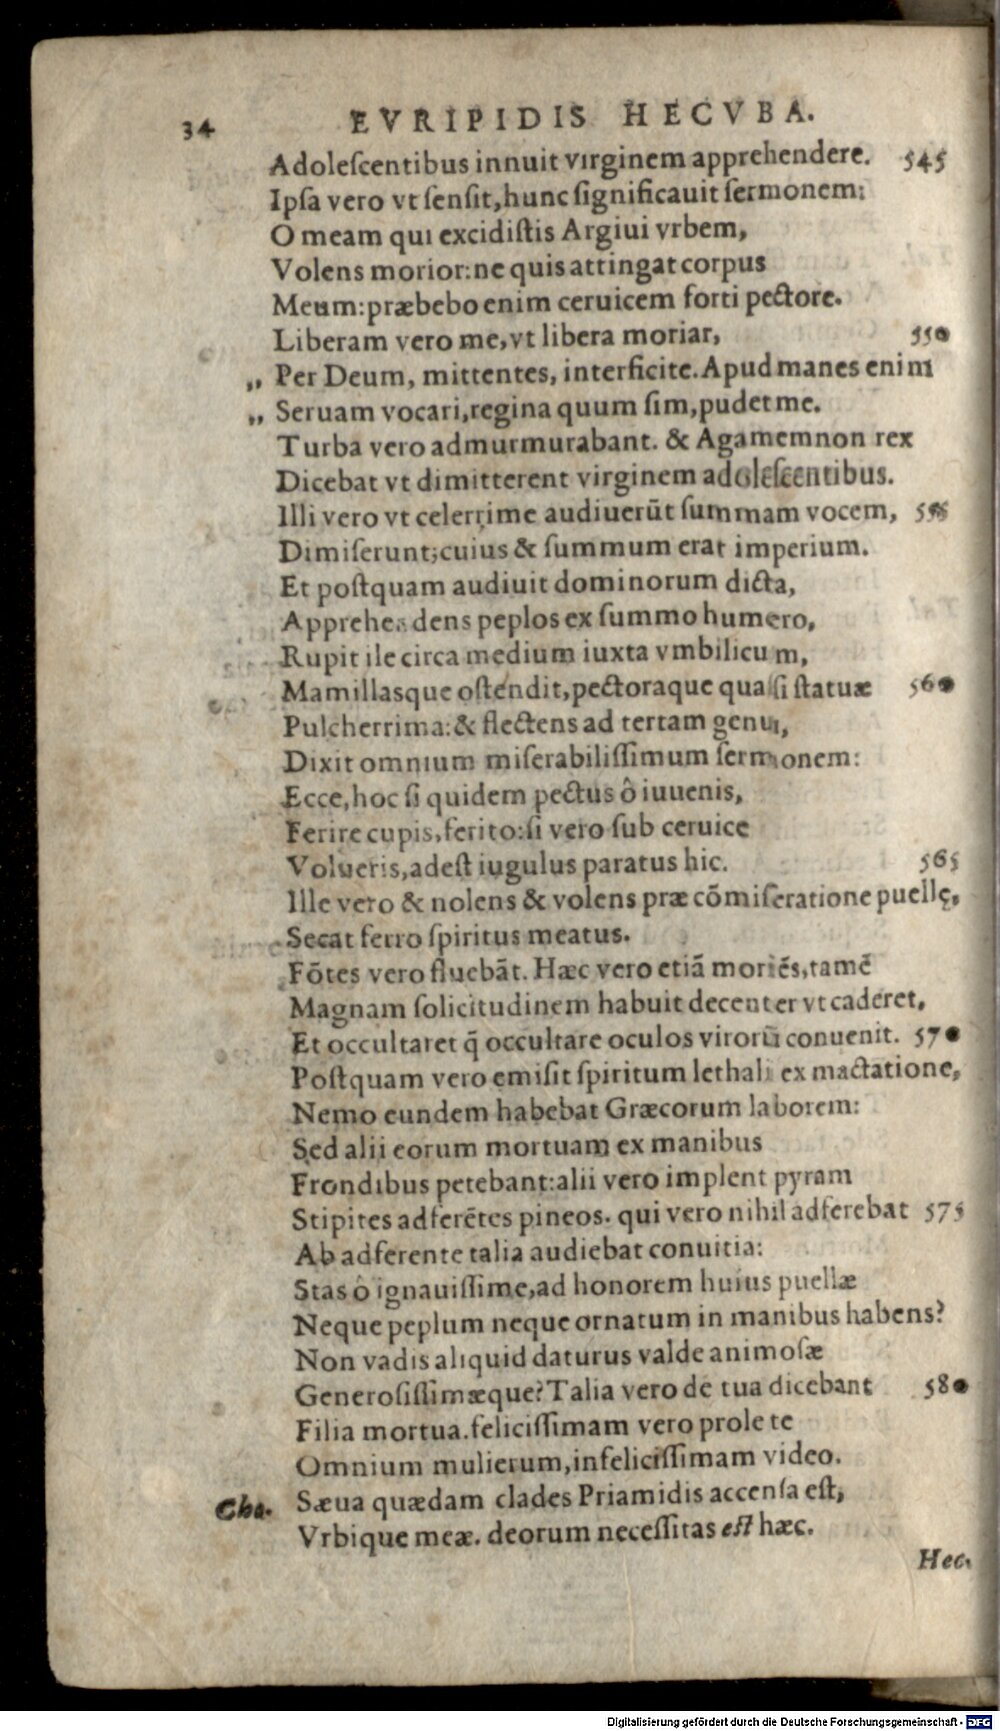 34 EVRIPIDIS HECVBA.
Adoleſcentibus innuit virginem apprehendere. 545
Ipſa vero vt ſenſit, hunc ſignificauit ſermonem:
O meam qui excidiſtis Argiui vrbem,
Volens morior: ne quis attingat corpus
Meum: præbebo enim ceruicem forti pectore.
Liberam vero me, vt libera moriar, 550
„ Per Deum, mittentes, interficite. Apud manes enim
„ Seruam vocari, regina quum ſim, pudet me.
Turba vero admurmurabant. & Agamemnon rex
Dicebat vt dimitterent virginem adoleſcentibus.
Illi vero vt celerrime audiuerūt ſummam vocem, 555
Dimiſerunt; cuius & ſummum erat imperium.
Et poſtquam audiuit dominorum dicta,
Apprehendens peplos ex ſummo humero,
Rupit ile circa medium iuxta vmbilicum,
Mamillasque oſtendit, pectoraque quaſi ſtatuæ 560
Pulcherrima: & flectens ad terram genu,
Dixit omnium miſerabiliſſimum ſermonem:
Ecce, hoc ſi quidem pectus ô iuuenis,
Ferire cupis, ferito: ſi vero ſub ceruice
Volueris, adeſt iugulus paratus hic. 565
Ille vero & nolens & volens præ cōmiſeratione puellę,
Secat ferro ſpiritus meatus.
Fōtes vero fluebāt. Hæc vero etiā moriēs, tamē
Magnam ſolicitudinem habuit decenter vt caderet,
Et occultaret q̄ occultare oculos virorū conuenit. 570
Poſtquam vero emiſit ſpiritum lethali ex mactatione,
Nemo eundem habebat Græcorum laborem:
Sed alii eorum mortuam ex manibus
Frondibus petebant: alii vero implent pyram
Stipites adferētes pineos. qui vero nihil adferebat 575
Ab adferente talia audiebat conuitia:
Stas ô ignauiſſime, ad honorem huius puellæ
Neque peplum neque ornatum in manibus habens?
Non vadis aliquid daturus valde animoſæ
Generoſiſſimæque? Talia vero de tua dicebant 580
Filia mortua. feliciſſimam vero prole te
Omnium mulierum, infeliciſſimam video.
Cho. Sæua quædam clades Priamidis accenſa eſt,
Vrbique meæ. deorum neceſſitas eſt hæc.
Hec.
Digitalisierung gefördert durch die Deutsche Forschungsgemeinschaft - DFG